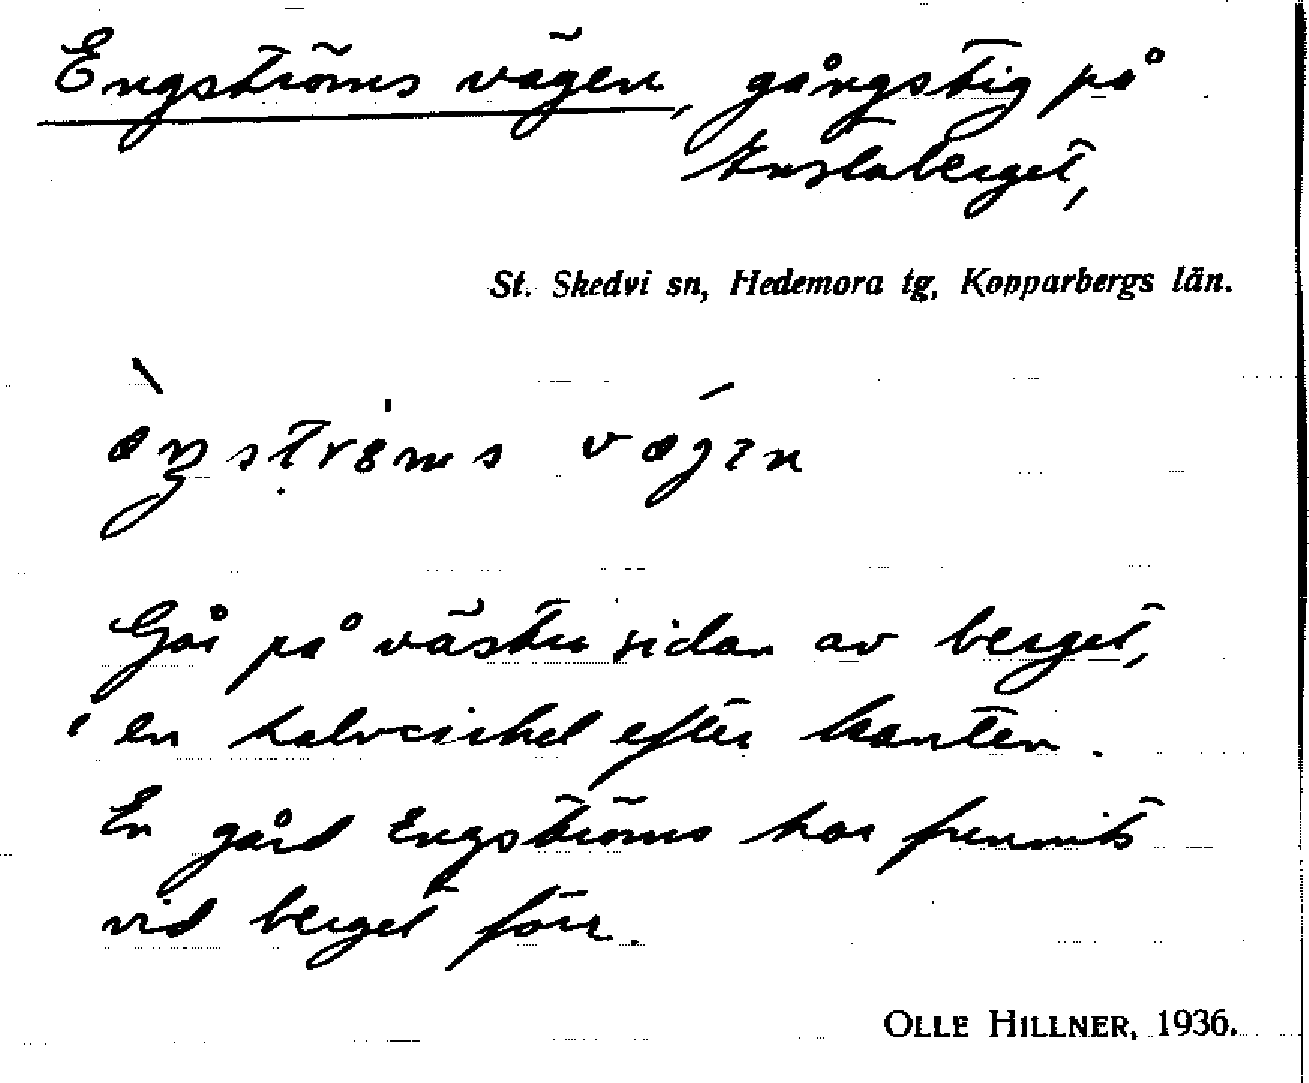 Engströms vägen, gångstig på
Anstaberget,
St. Skedvi sn, Hedemora tg, Kopparbergs län.
vägen
Går på västra sidan av berget,
i en halvcirkel efter kanten.
En gård Engströms har funnits
vid berget förr.
OLLE HILLNER, 1936.